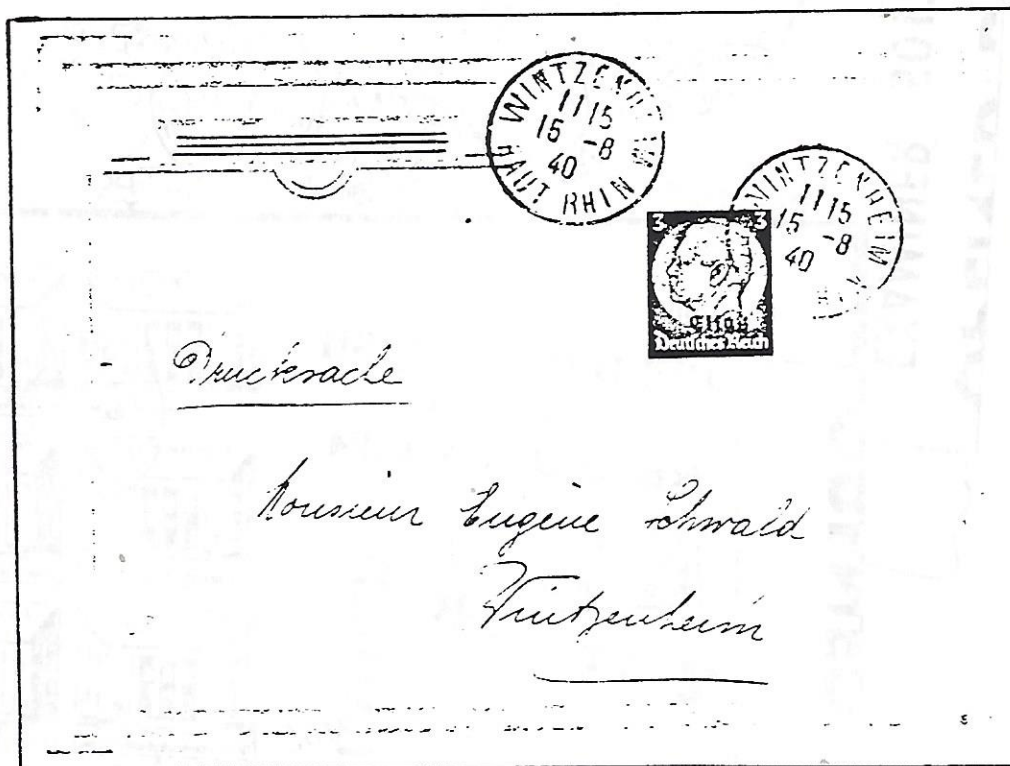 WINTZENHEIM
1115
15 -8
40
HAUT RHIN
WINTZENHEIM
1115
15 -8
40
3 3
Elsaß
Deutsches Reich
Drucksache
Monsieur Eugène Schwald
Wintzenheim